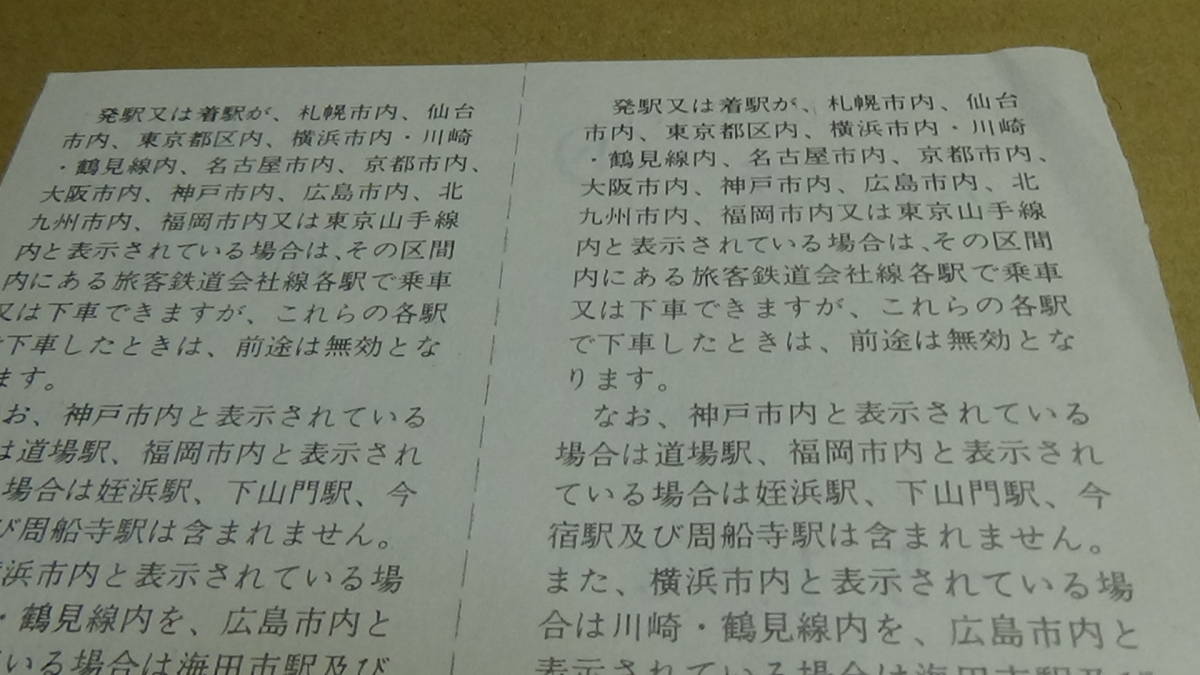 発駅又は着駅が、札幌市内、仙台
市内、東京都区内、横浜市内・川崎
・鶴見線内、名古屋市内、京都市内、
大阪市内、神戸市内、広島市内、北
九州市内、福岡市内又は東京山手線
内と表示されている場合は、その区間
内にある旅客鉄道会社線各駅で乗車
又は下車できますが、これらの各駅
で下車したときは、前途は無効とな
ります。
お、神戸市内と表示されている
は道場駅、福岡市内と表示され
場合は姪浜駅、下山門駅、今
び周船寺駅は含まれません。
浜市内と表示されている場
・鶴見線内を、広島市内と
いる場合は海田市駅及び
発駅又は着駅が、札幌市内、仙台
市内、東京都区内、横浜市内・川崎
・鶴見線内、名古屋市内、京都市内、
大阪市内、神戸市内、広島市内、北
九州市内、福岡市内又は東京山手線
内と表示されている場合は、その区間
内にある旅客鉄道会社線各駅で乗車
又は下車できますが、これらの各駅
で下車したときは、前途は無効とな
ります。
なお、神戸市内と表示されている
場合は道場駅、福岡市内と表示され
ている場合は姪浜駅、下山門駅、今
宿駅及び周船寺駅は含まれません。
また、横浜市内と表示されている場
合は川崎・鶴見線内を、広島市内と
表示されている場合は海田市駅及び